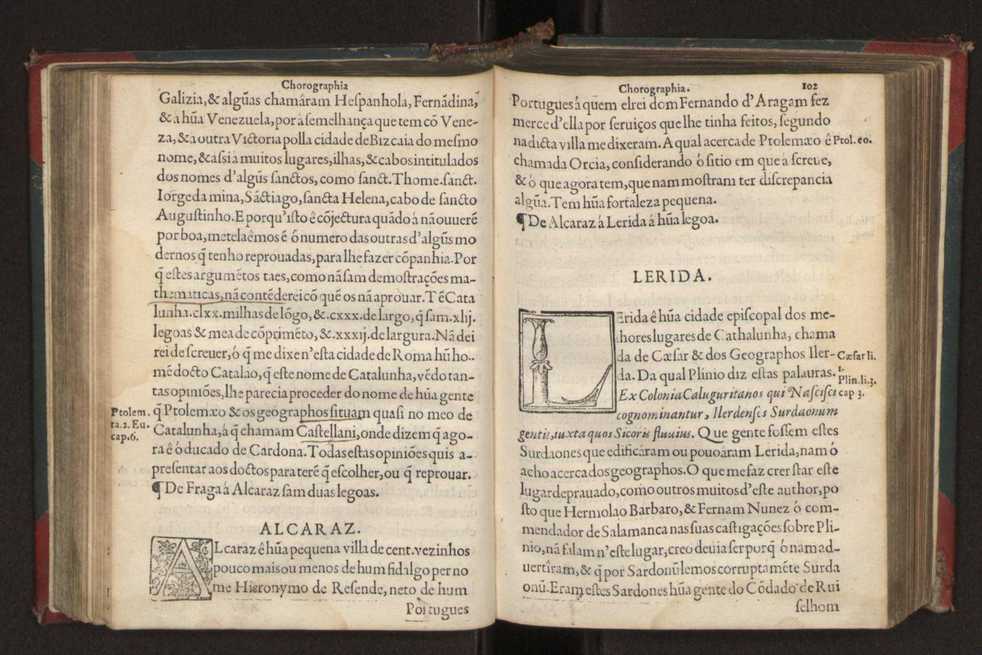 Chorographia
Galizia,& algũas chamáram Hespanhola, Fernãdina,
& a hũa Venezuela, por à semelhança que tem cõ Vene-
za, & a outra Victoria polla cidade de Bizcaia do mesmo
nome, & assi a muitos lugares, ilhas, & cabos intitulados
dos nomes d'algũs sanctos, como sanct. Thome. sanct.
Iorge da mina, Sáctiago, sancta Helena, cabo de sancto
Augustinho. E porqu'isto ê cõjectura quãdo à nã ouuerẽ
por boa, metela êmos ê ó numero das outras d'algũs mo
dernos q̃ tenho reprouadas, para lhe fazer cõpanhia. Por
q̃ estes argumẽtos taes, como nã sam demostrações ma-
thematicas, nã contẽderei cõ quẽ os nã aprouar. Tẽ Cata
lunha. clxx. milhas de lõgo, &. cxxx. de largo, q̃ sam. xlij.
legoas & mea de cõprimẽto, &. xxxij. de largura. Nã dei
rei de screuer, ó q̃ me dixe n'esta cidade de Roma hũ ho-
mẽ docto Catalão, q̃ este nome de Catalunha, vẽdo tan-
tas opiniões, lhe parecia proceder do nome de hũa gente
Ptolem. ta. 2. Eu. cap. 6.
q̃ Ptolemæo & os geographos situam quasi no meo de
Catalunha, à q̃ chamam Castellani, onde dizem q̃ ago-
ra ê ó ducado de Cardona. Todas estas opiniões quis a-
presentar aos doctos para terẽ q̃ escolher, ou q̃ reprouar.
¶ De Fraga á Alcaraz sam duas legoas.
ALCARAZ.
ALcaraz ê hũa pequena villa de cent. vezinhos
pouco mais ou menos de hum fidalgo per no
me Hieronymo de Resende, neto de hum
Portugues
Chorographia. 102
Portugues á quem elrei dom Fernando d'Aragam fez
merce d'ella por seruiços que lhe tinha feitos, segundo
na dicta villa me dixeram. A qual acerca de Ptolemæo ê
Ptol. eo.
chamada Orcia, considerando ó sitio em que a screue,
& ó que agora tem, que nam mostram ter discrepancia
algũa. Tem hũa fortaleza pequena.
¶ De Alcaraz á Lerida á hũa legoa.
LERIDA.
LErida ê hũa cidade episcopal dos me-
lhores lugares de Cathalunha, chama
da de Cæsar & dos Geographos Iler-
Cæsar li. 1.
da. Da qual Plinio diz estas palauras.
Plin. li. 3. cap 3.
Ex Colonia Caluguritanos qui Nascisci
cognominantur, Ilerdenses Surdaonum
gentis, iuxta quos Sicoris fluuius. Que gente fossem estes
Surdaones que edificáram ou pouoáram Lerida, nam ó
acho acerca dos geographos. O que me faz crer star este
lugar deprauado, como outros muitos d'este author, po
sto que Hermolao Barbaro, & Fernam Nunez ó com-
mendador de Salamanca nas suas castigações sobre Pli-
nio, nã falam n'este lugar, creo deuia ser porq̃ ó nam ad-
uertîram, & q̃ por Sardonũ lemos corruptamẽte Surda
onũ. Eram estes Sardones hũa gente do Cõdado de Rui
selhom